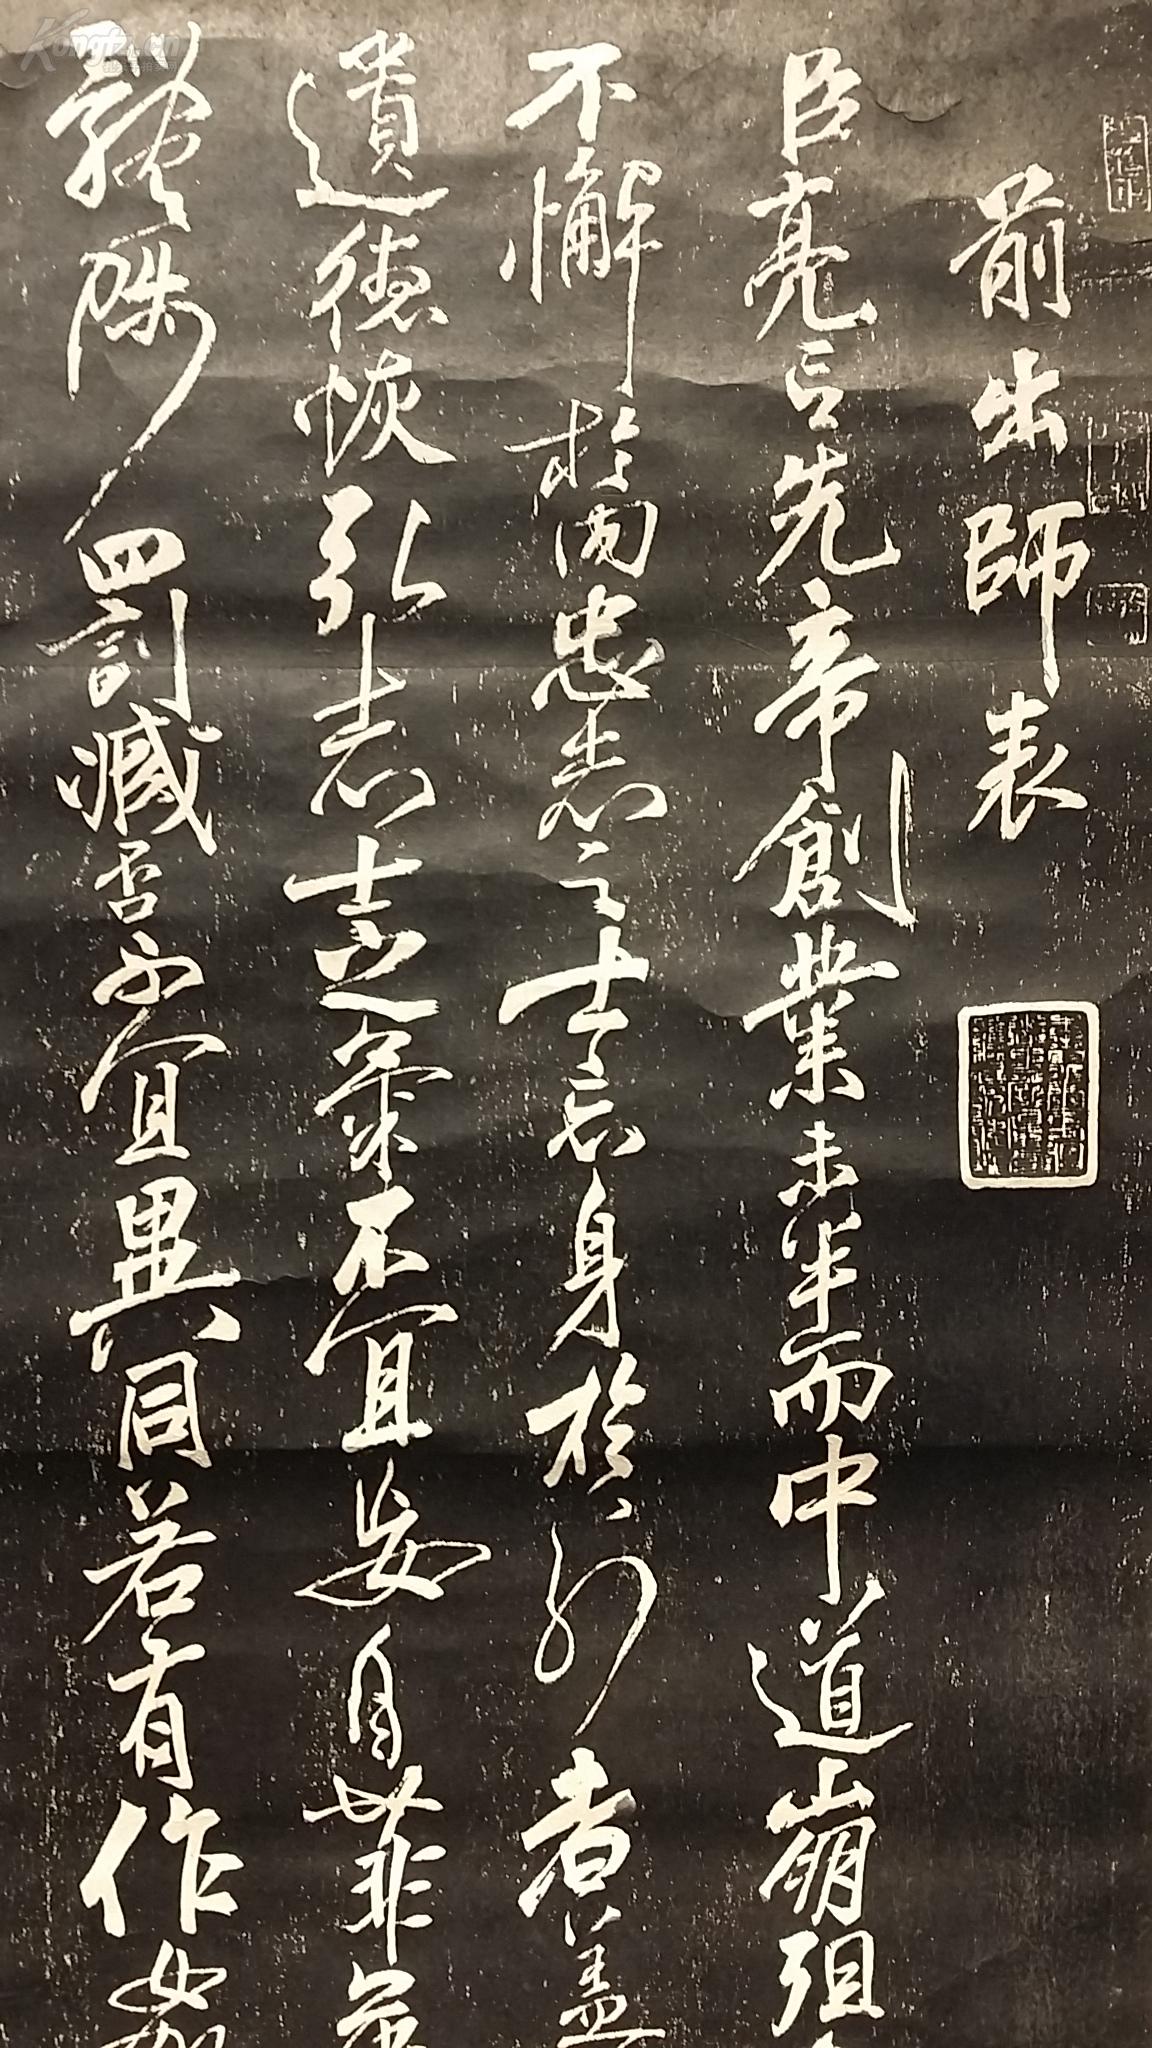 前出師表
臣亮言先帝創業未半而中道崩殂
不懈於内忠志之士忘身於外者盖
遺德恢弘志士之氣不宜妄自菲
體陟罰臧否不宜異同若有作
Kongfz.cn